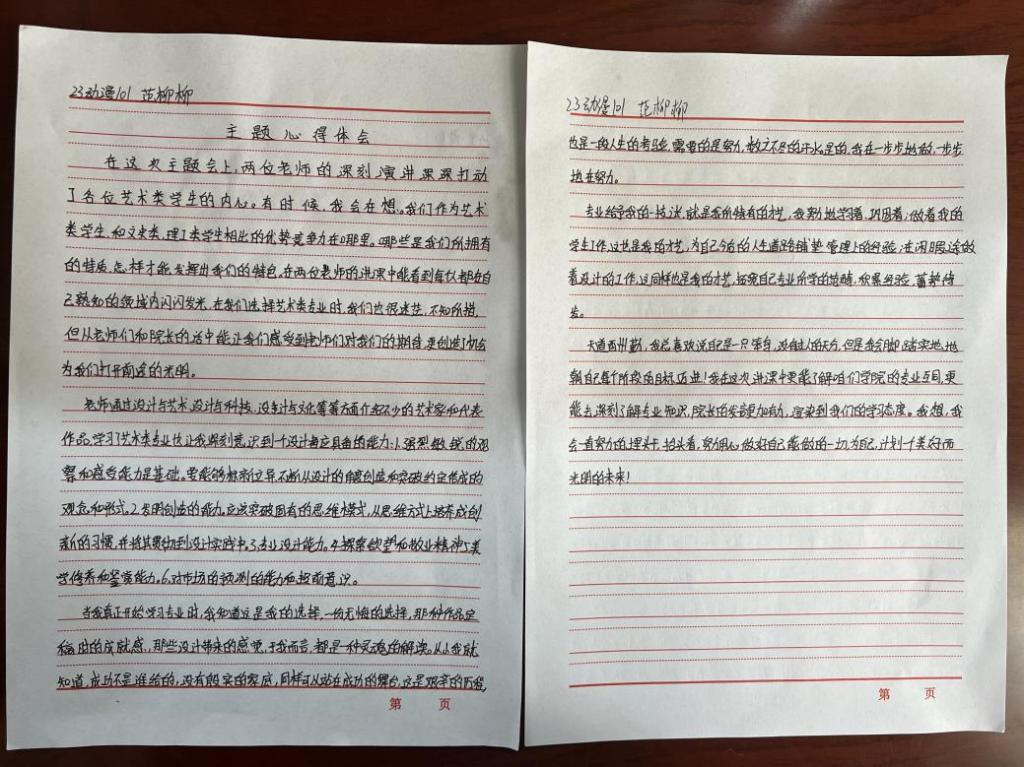 23动漫101 范柳柳
主题心得体会
在这次主题会上,两位老师的深刻演讲深深打动
了各位艺术类学生的内心。有时候,我会在想,我们作为艺术
类学生,和文史类,理工类学生相比的优势竞争力在哪里。哪些是我们所拥有
的特质,怎样才能发挥出我们的特色。在两位老师的讲课中能看到每位都在自
己熟知的领域内闪闪发光,在我们选择艺术类专业时,我们也很迷茫,不知所措,
但从老师们和院长的话中能让我们感受到老师们对我们的期待,更创造了机会
为我们打开前途的光明。
老师通过设计与艺术,设计与科技,设计与文化等等方面介绍不少的艺术家和代表
作品,学习了艺术类专业也让我深刻意识到一个设计者应具备的能力:1.强烈敏锐的观
察和感受能力是基础。要能够标新立异,不断从设计的角度创造和突破约定俗成的
观念和形式。2.发明创造的能力。应该突破固有的思维模式,从思维方式上培养成创
新的习惯,并将其贯彻到设计实践中。3.专业设计能力。4.探索欲望和敬业精神5.美
学修养和鉴赏能力。6.对市场的预测的能力和超前意识。
当我真正开始学习专业时,我知道这是我的选择,一份无悔的选择,那种作品定
稿时的成就感,那些设计带来的感觉,于我而言,都是一种灵魂的解读。从小我就
知道,成功不是谁给的,没有殷实的家底,同样可以站在成功的舞台,这是艰辛的历程,
第 页
23动漫101 范柳柳
也是一段人生的考验,需要的是努力,数之不尽的汗水是的,我在一步步地做,一步步
地在努力。
专业给予我的一技之长,就是我所特有的才艺,我努力地学习着,巩固着;做着我的
学生工作,这也是我的才艺,为自己今后的人生道路铺垫管理上的经验;在闲暇途做
着设计的工作,这同样也是我的才艺,拓宽自己专业所学的范畴,积累经验,蓄势待
发。
天道酬勤,我总喜欢说自己是一只笨鸟,没有过人的天分,但是我会脚踏实地,地
朝自己每个阶段的目标迈进!我在这次讲课中更能了解咱们学院的专业互目,更
能去深刻了解专业知识,院长的发言更加有力,渲染到我们的学习态度。我想,我
会一直努力的埋头干,抬头看,努力用心做好自己能做的一切,为自己,计划一个美好而
光明的未来!
第 页